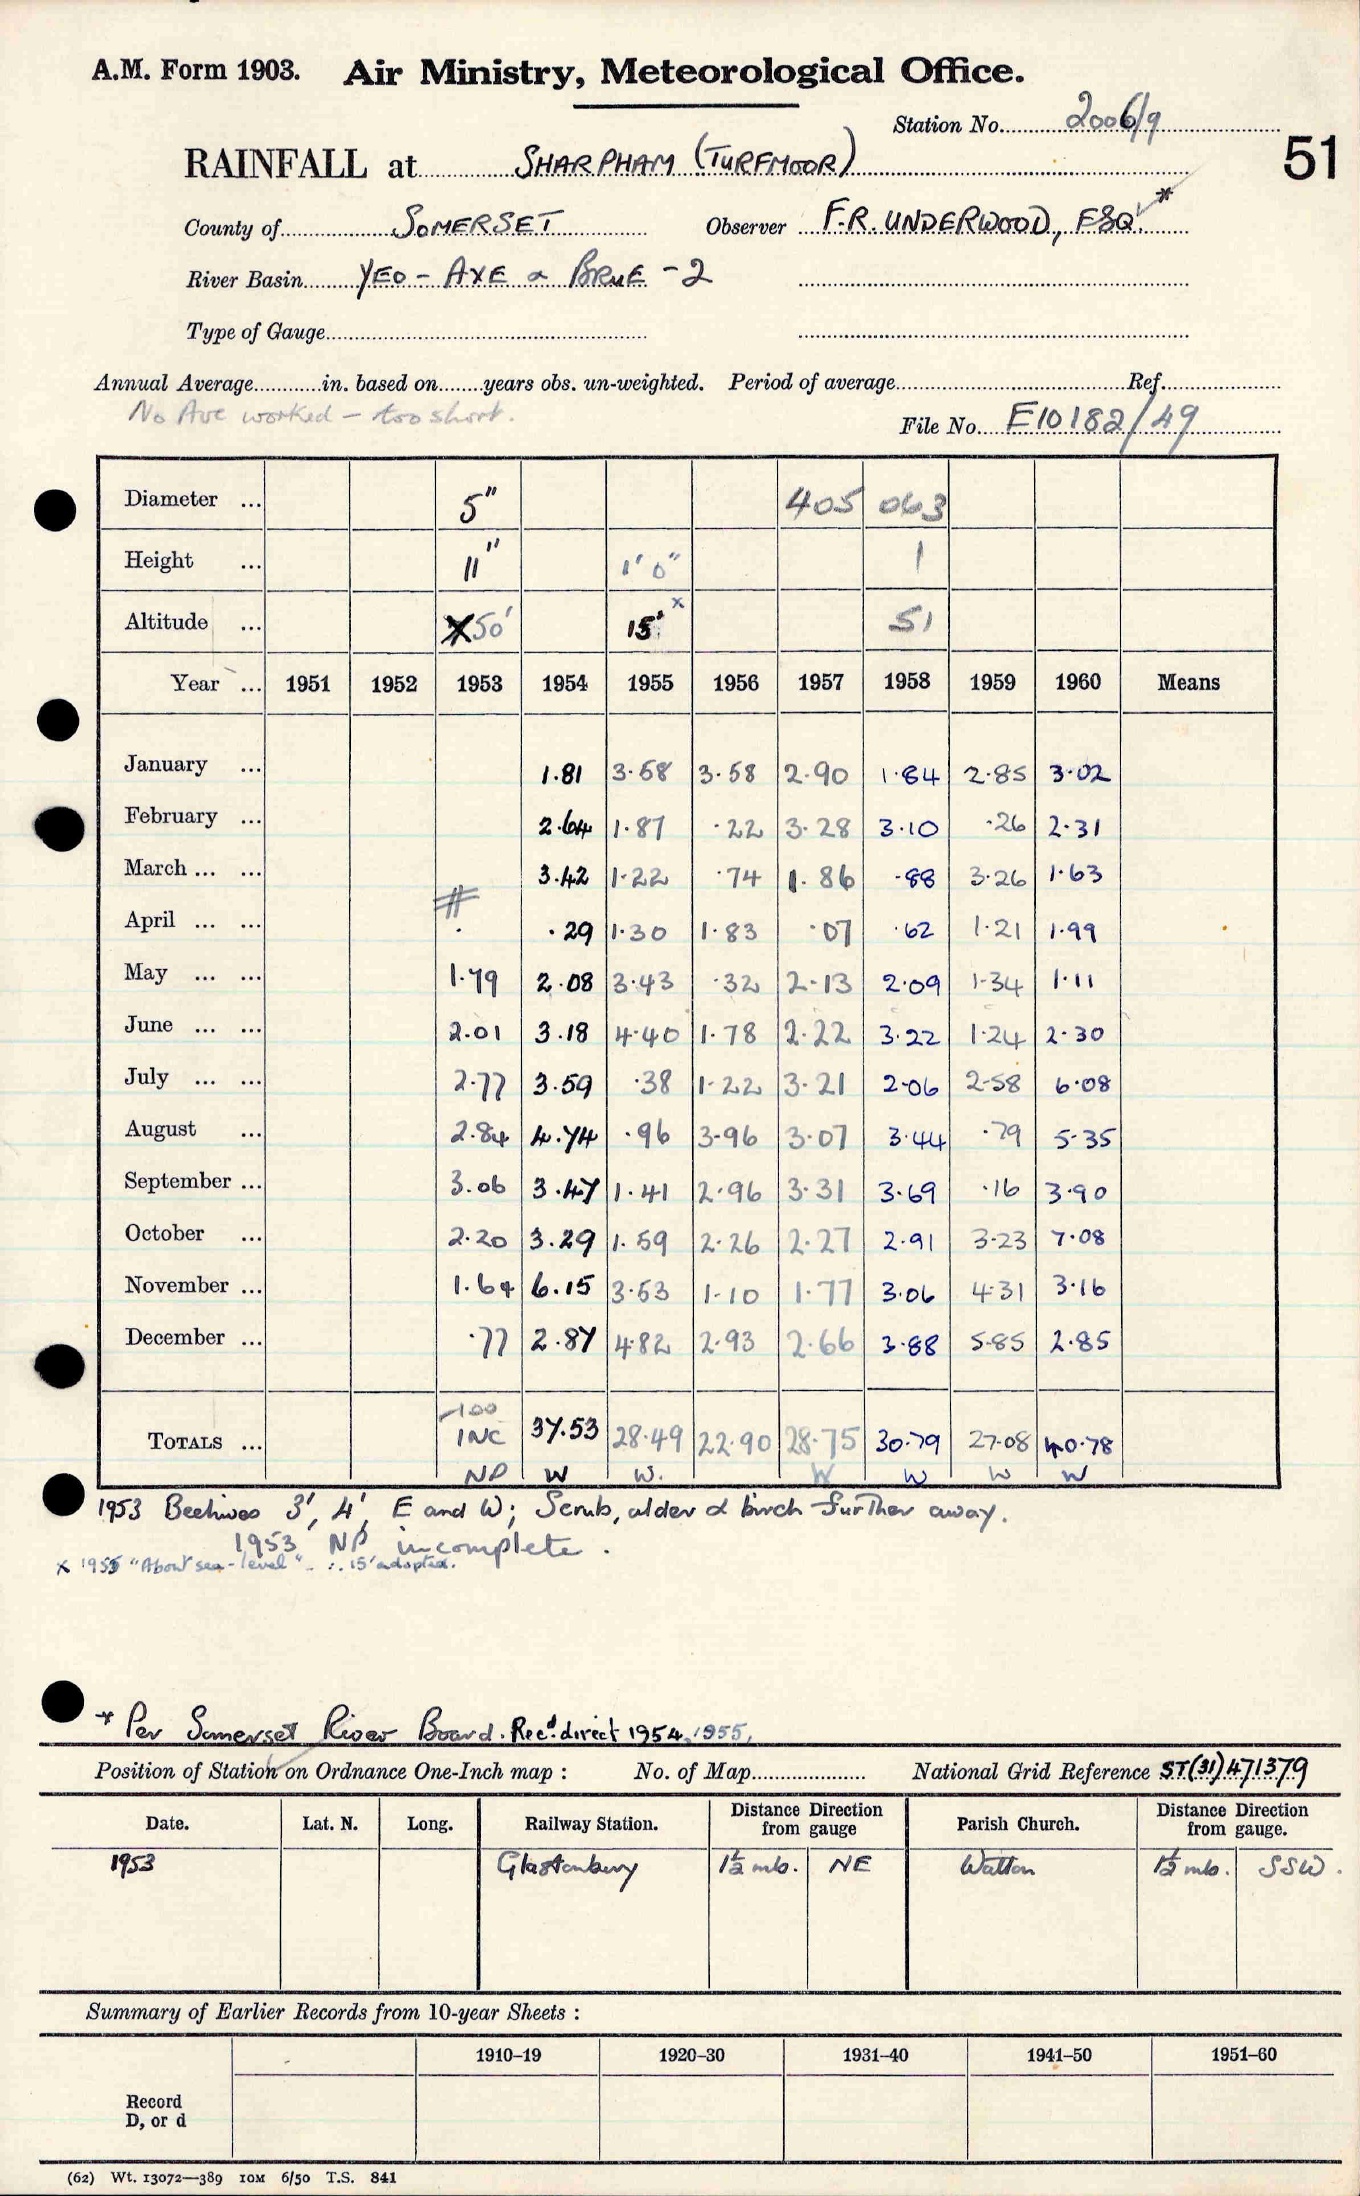 A.M. Form 1903. Air Ministry, Meteorological Office.
Station No. 2006/9
51
RAINFALL at SHARPHAM (TURFMOOR)
County of SOMERSET Observer F.R. UNDERWOOD, ESQ. *
River Basin YEO - AXE & BRUE - 2
Type of Gauge
Annual Average in. based on years obs. un-weighted. Period of average Ref.
No Ave worked - too short.
File No. E10182/49
Diameter ... 5" 405 063
Height ... 11" 1' 0" 1
Altitude ... 50' 15' x 51
Year ... 1951 1952 1953 1954 1955 1956 1957 1958 1959 1960 Means
January ... 1.81 3.58 3.58 2.90 1.84 2.85 3.02
February ... 2.64 1.87 .22 3.28 3.10 .26 2.31
March ... ... 3.42 1.22 .74 1.86 .88 3.26 1.63
April ... ... .29 1.30 1.83 .07 .62 1.21 1.99
May ... ... 1.79 2.08 3.43 .32 2.13 2.09 1.34 1.11
June ... ... 2.01 3.18 4.40 1.78 2.22 3.22 1.24 2.30
July ... ... 2.77 3.59 .38 1.22 3.21 2.06 2.58 6.08
August ... 2.84 4.74 .96 3.96 3.07 3.44 .79 5.35
September ... 3.06 3.47 1.41 2.96 3.31 3.69 .16 3.90
October ... 2.20 3.29 1.59 2.26 2.27 2.91 3.23 7.08
November ... 1.64 6.15 3.53 1.10 1.77 3.06 4.31 3.16
December ... .77 2.87 4.82 2.93 2.66 3.88 5.85 2.85
-100
TOTALS ... INC 37.53 28.49 22.90 28.75 30.79 27.08 40.78
NP W W. W W W W
1953 Beehives 3', 4', E and W; Scrub, alder & birch further away.
1953 NP incomplete.
x 1955 "About sea-level" - ∴ 15' adopted.
* Per Somerset River Board. Recd. direct 1954, 1955,
Position of Station on Ordnance One-Inch map : No. of Map National Grid Reference ST(31)471379
Date. Lat. N. Long. Railway Station. Distance Direction from gauge Parish Church. Distance Direction from gauge.
1953 Glastonbury 1½ mls. NE Walton 1½ mls. SSW.
Summary of Earlier Records from 10-year Sheets :
1910–19 1920–30 1931–40 1941–50 1951–60
Record
D, or d
(62) Wt. 13072—389 10M 6/50 T.S. 841